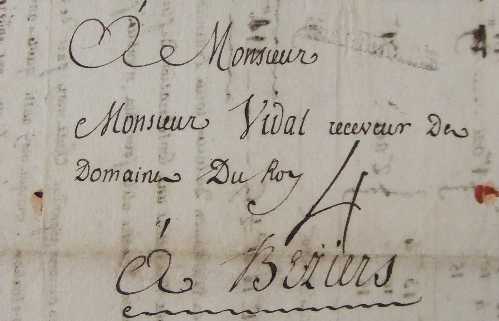 À Monsieur
Monsieur Vidal receveur De
Domaine Du Roy
4
à Beziers